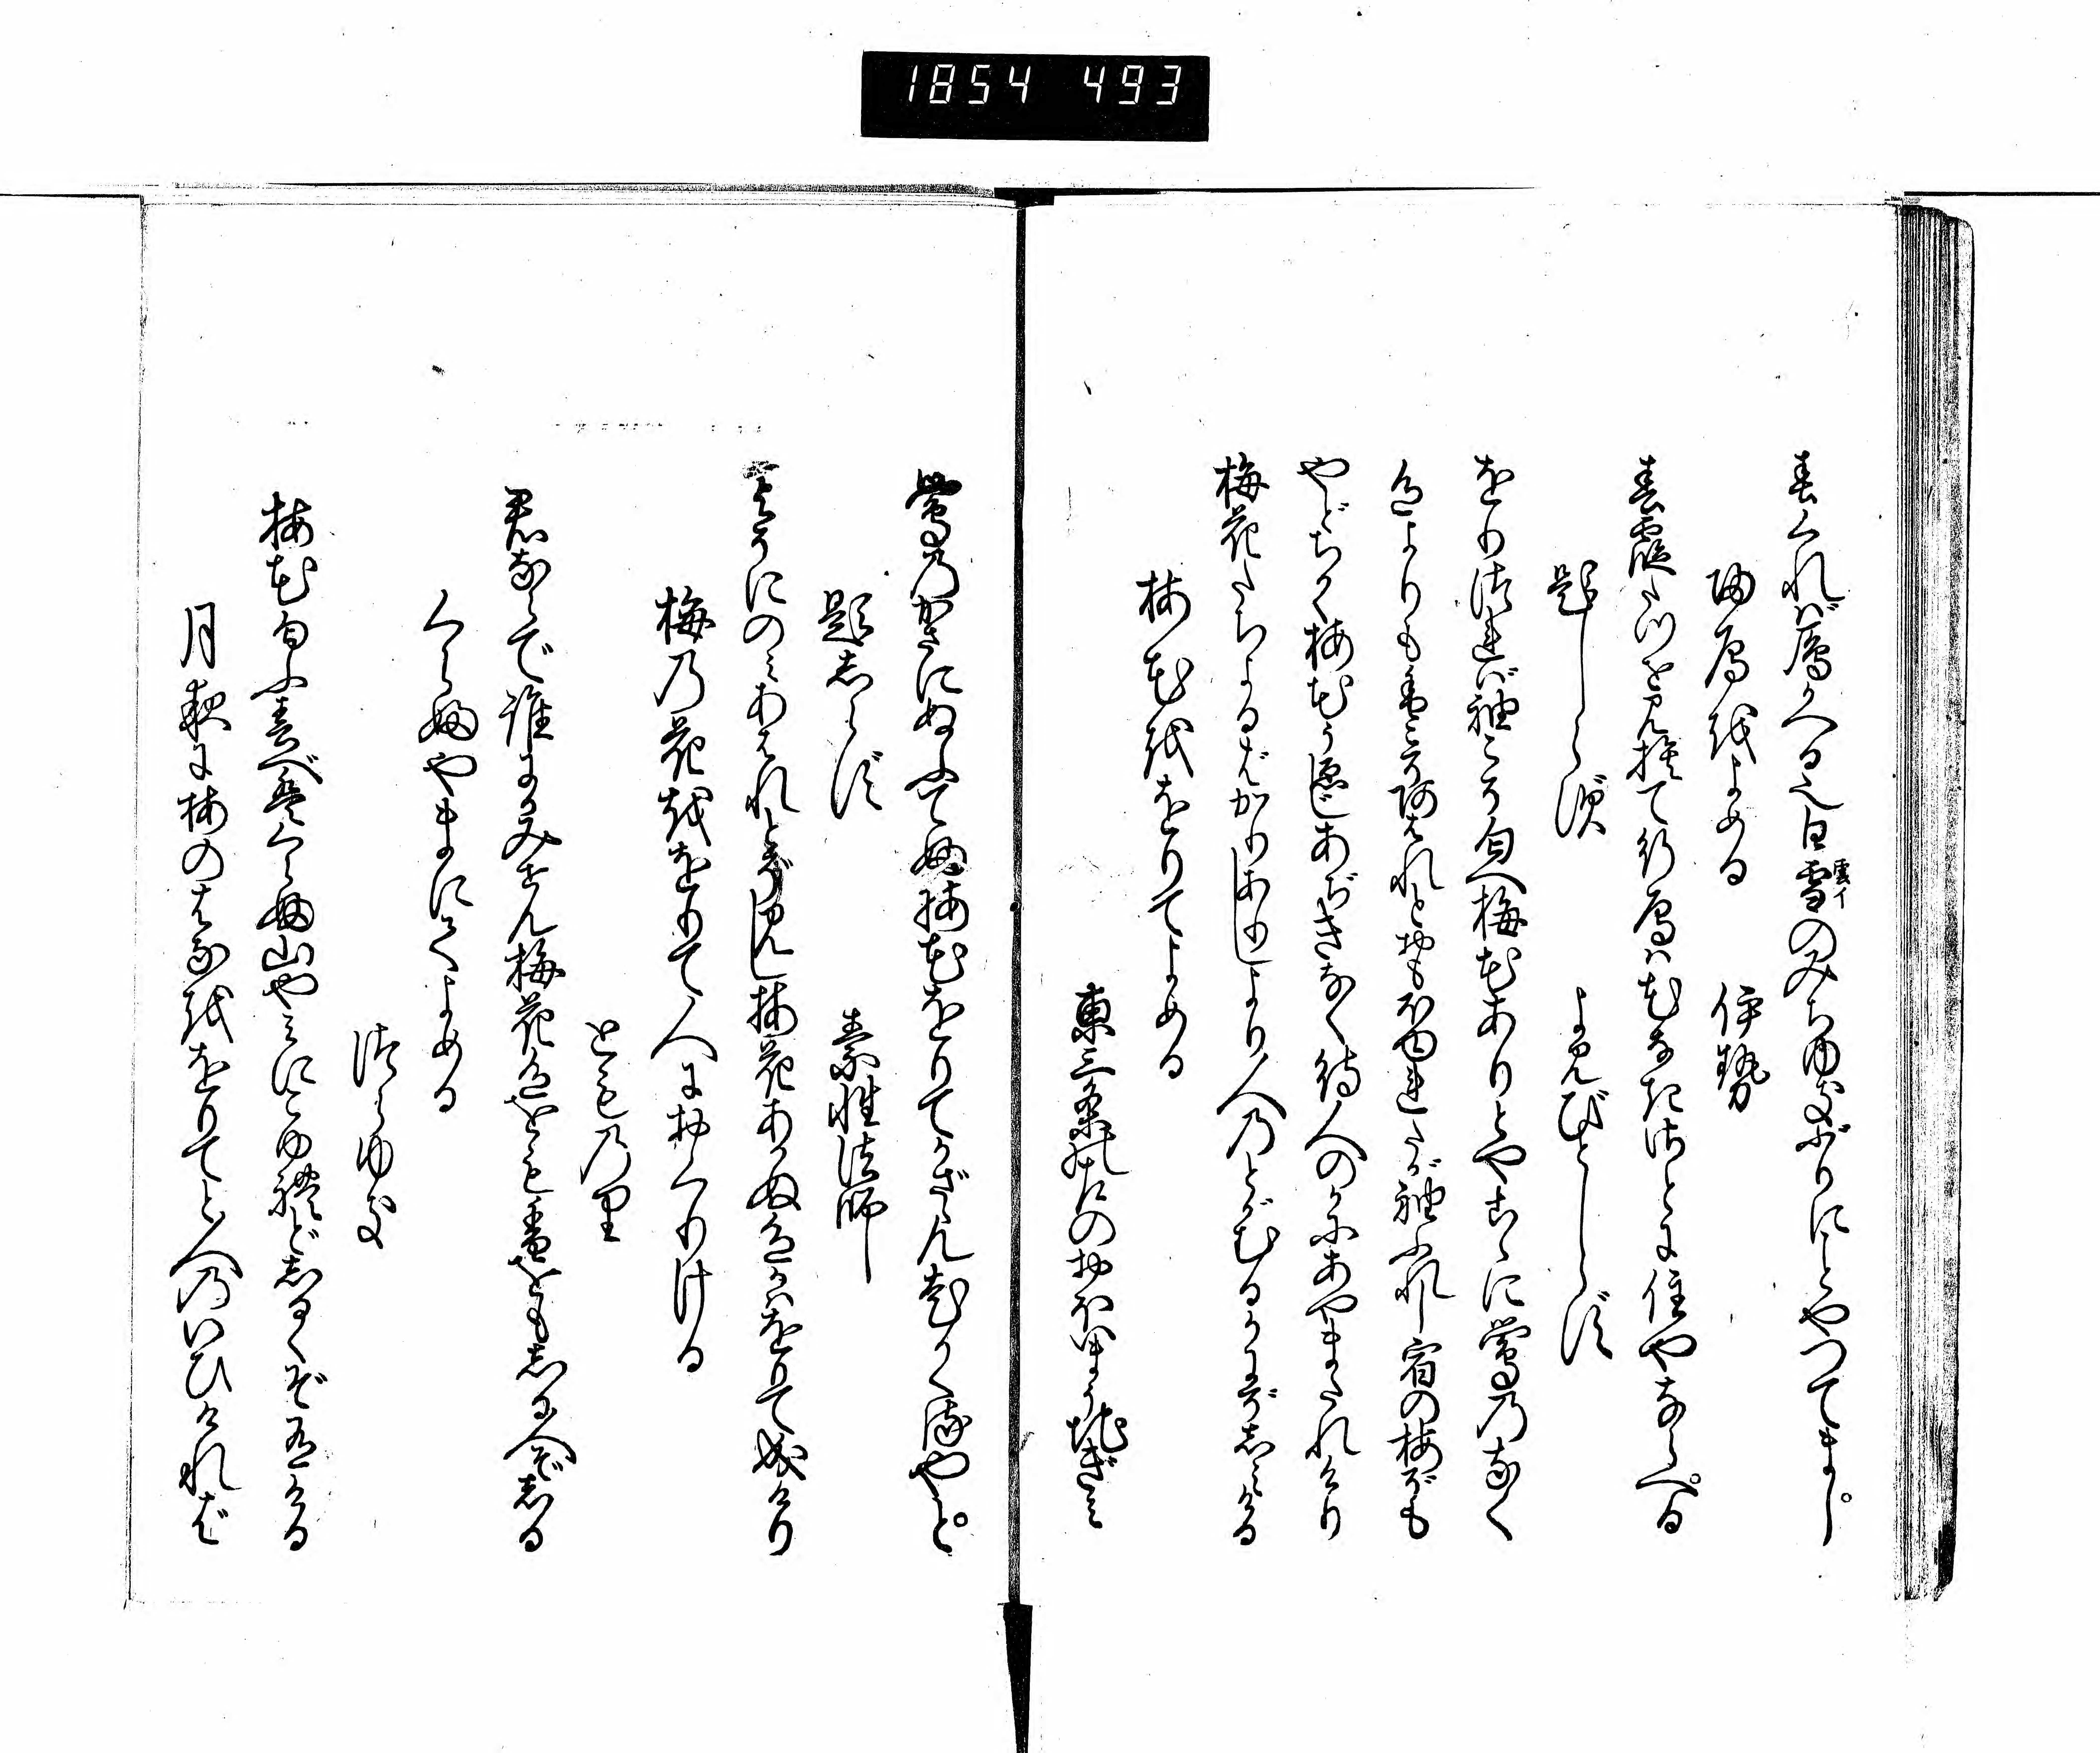 1854 493
春くれば鴈かへる也白雪のみちゆきぶりにことやつてまし
雲イ
帰鴈をよめる
伊勢
春霞たつを見捨て行鴈は花なきさとに住やならへる
題しらず
よみ人しらず
をりつれば袖こそ匀へ梅花ありとやこゝに鶯のなく
色よりも香こそあはれとおもほゆれたが袖ふれし宿の梅ぞも
やどちかく梅花うゑじあぢきなく待人のかにあやまたれけり
梅花たちよるばかりありしより人のとがむるかにぞしみける
梅花をゝりてよめる
東三条の左のおほいまうちぎみ
鶯のかさにぬふてふ梅花をりてかざさん老かくるやと
題しらず
素性法師
よそにのみあはれとぞ見し梅花あかぬ色かはをりて成けり
梅の花をゝりて人におくりける
とものり
君ならで誰にかみせん梅花色をも香をもしる人ぞしる
くらふやまにてよめる
つらゆき
梅花匀ふ春べはくらふ山やみにこゆれどしるくぞ有ける
月夜に梅のはなををりてと人のいひければ